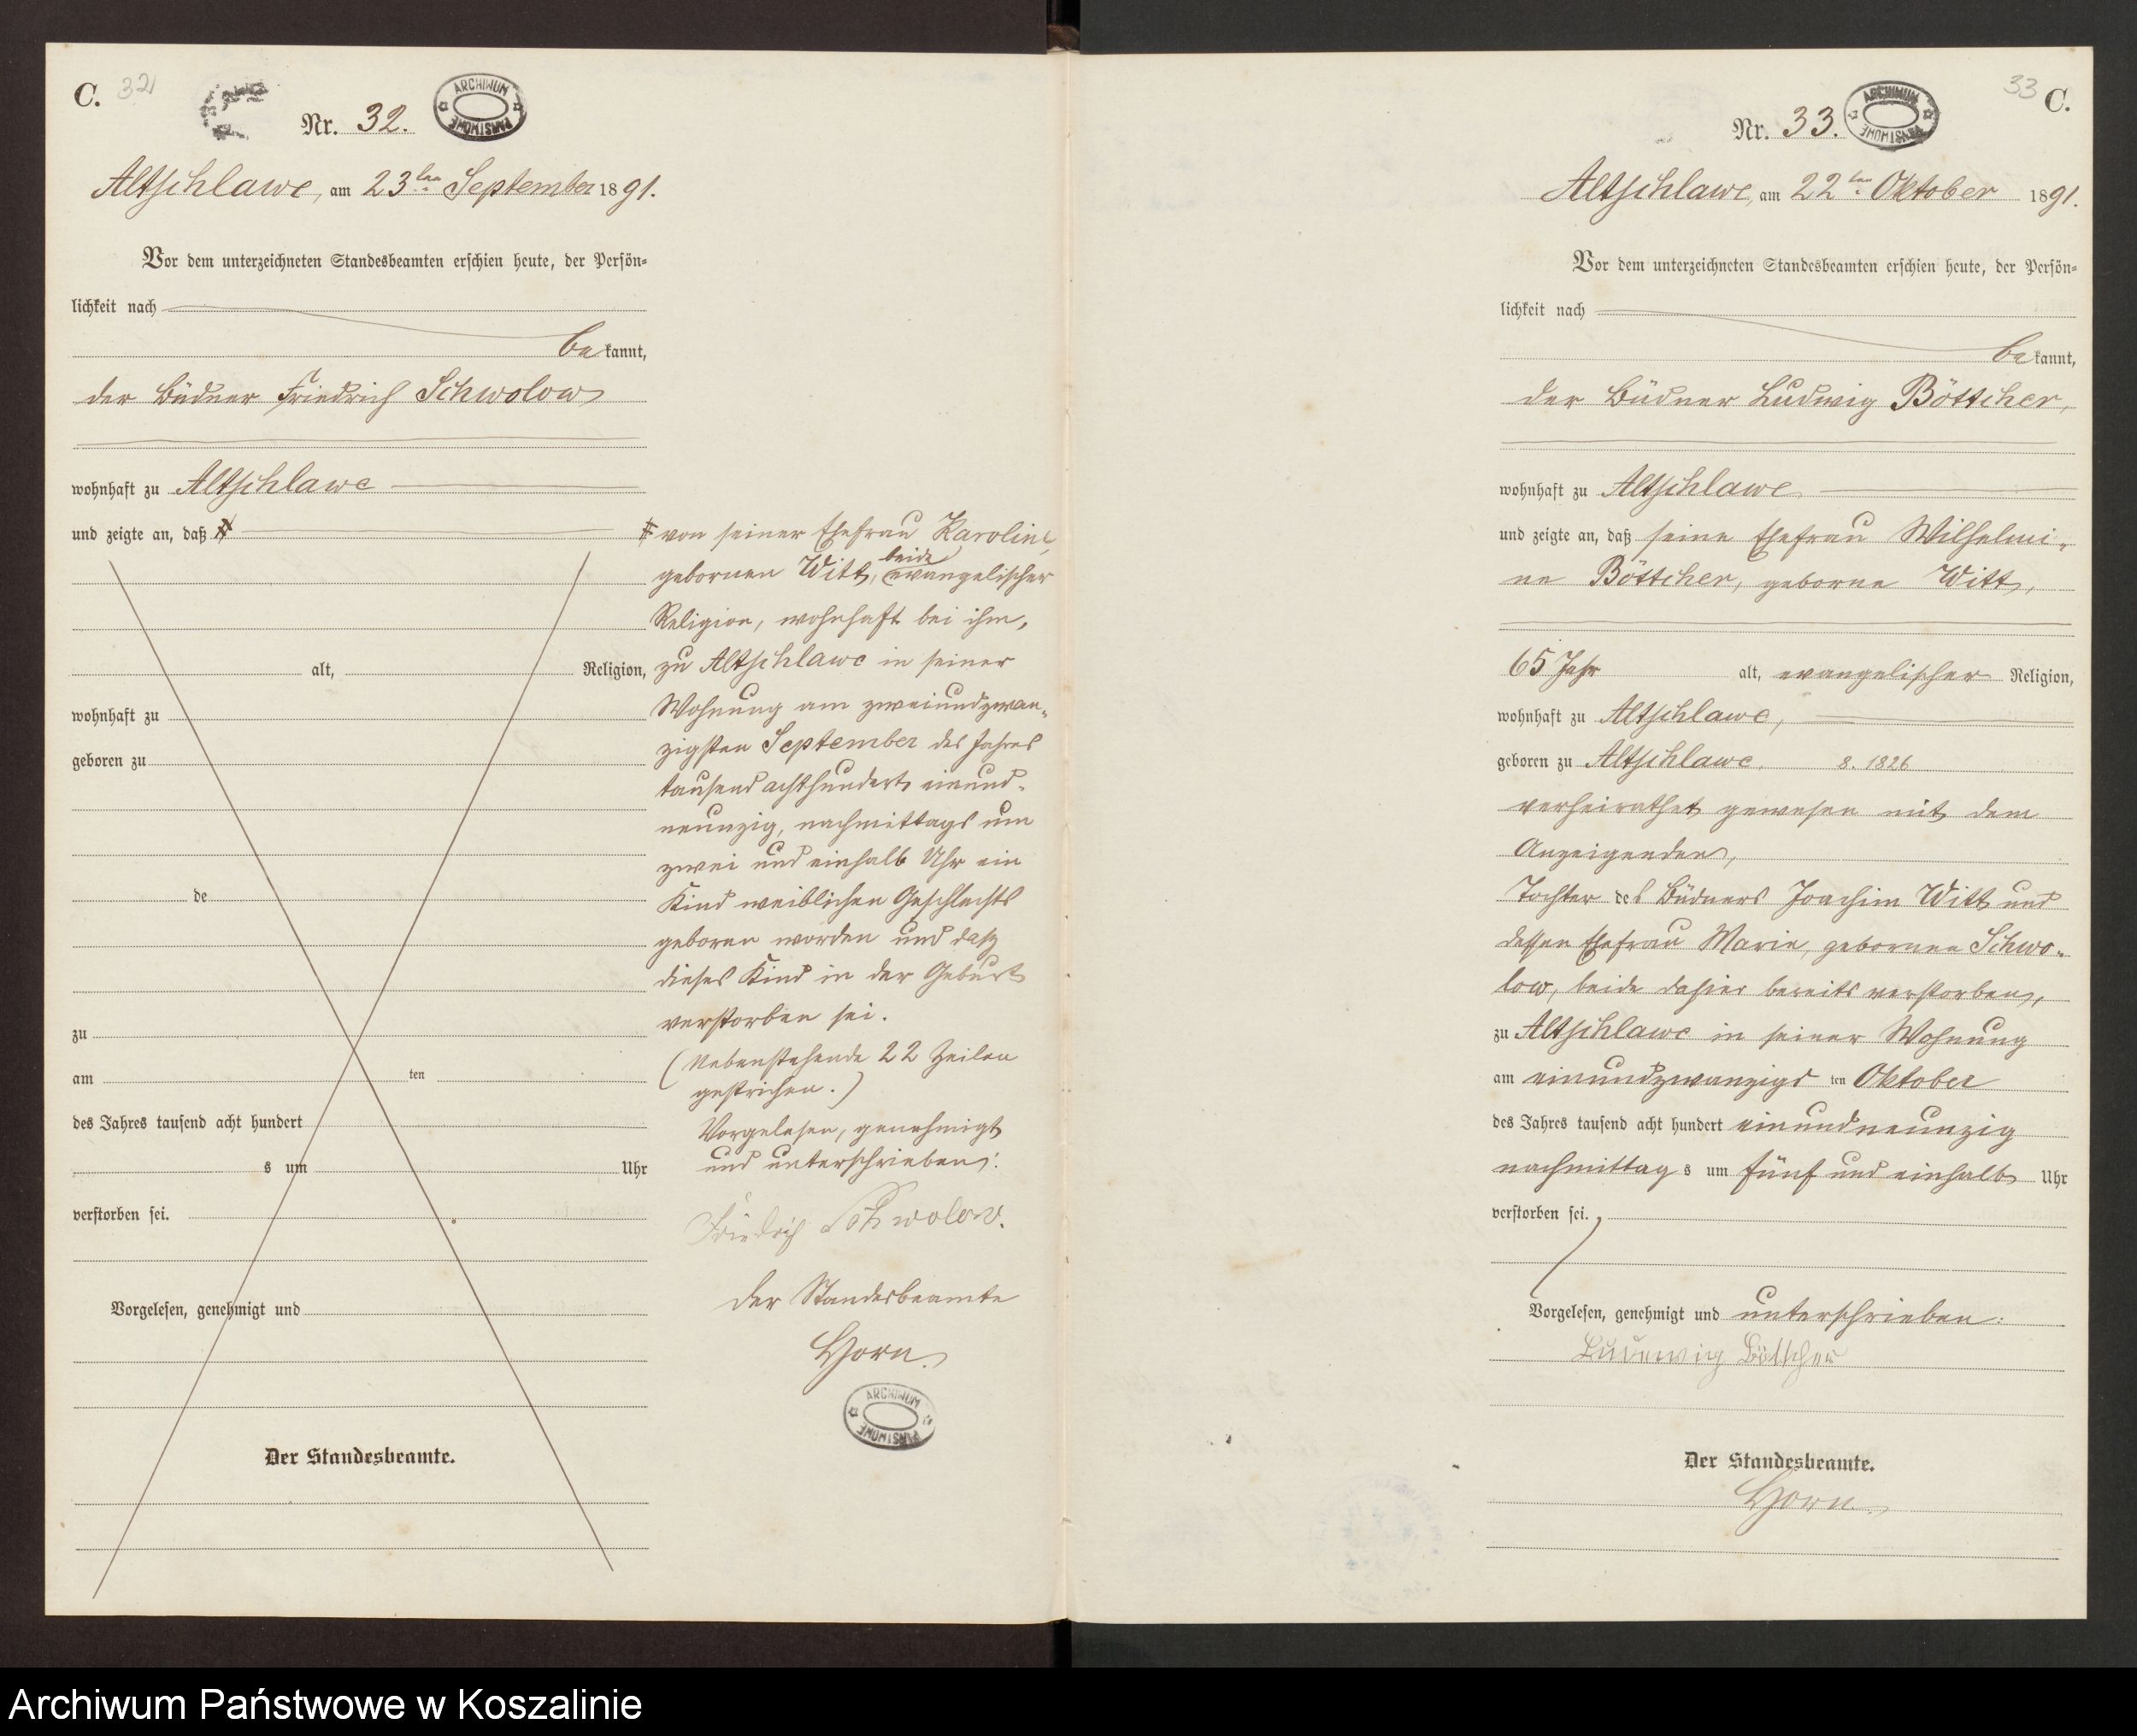 C. 32
Nr. 32.
ARCHIWUM PAŃSTWOWE
Altschlawe, am 23ten September 1891.
Vor dem unterzeichneten Standesbeamten erschien heute, der Persön-
lichkeit nach
bekannt,
der Büdner Friedrich Schwolow
wohnhaft zu Altschlawe
und zeigte an, daß #
alt, Religion,
wohnhaft zu
geboren zu
de
zu
am ten
des Jahres tausend acht hundert
s um Uhr
verstorben sei.
Vorgelesen, genehmigt und
Der Standesbeamte.
# von seiner Ehefrau Karoline,
gebornen Witt, beide evangelischer
Religion, wohnhaft bei ihm,
zu Altschlawe in seiner
Wohnung am zweiundzwan-
zigsten September des Jahres
tausend achthundert einund-
neunzig, nachmittags um
zwei und einhalb Uhr ein
Kind weiblichen Geschlechts
geboren worden und daß
dieses Kind in der Geburt
verstorben sei.
(Nebenstehende 22 Zeilen
gestrichen.)
Vorgelesen, genehmigt
und unterschrieben:
Friedrich Schwolow.
Der Standesbeamte
Horn.
ARCHIWUM PAŃSTWOWE
33 C.
Nr. 33.
ARCHIWUM PAŃSTWOWE
Altschlawe, am 22ten Oktober 1891.
Vor dem unterzeichneten Standesbeamten erschien heute, der Persön-
lichkeit nach
bekannt,
der Büdner Ludwig Böttcher,
wohnhaft zu Altschlawe
und zeigte an, daß seine Ehefrau Wilhelmi-
ne Böttcher, geborne Witt,
65 Jahr alt, evangelischer Religion,
wohnhaft zu Altschlawe,
geboren zu Altschlawe, 8. 1826
verheirathet gewesen mit dem
Anzeigenden,
Tochter des Büdners Joachim Witt und
dessen Ehefrau Marie, gebornen Schwo-
low, beide dahier bereits verstorben,
zu Altschlawe in seiner Wohnung
am einundzwanzigsten Oktober
des Jahres tausend acht hundert einundneunzig
nachmittags um fünf und einhalb Uhr
verstorben sei.
Vorgelesen, genehmigt und unterschrieben:
Ludewig Böttcher
Der Standesbeamte.
Horn.
Archiwum Państwowe w Koszalinie